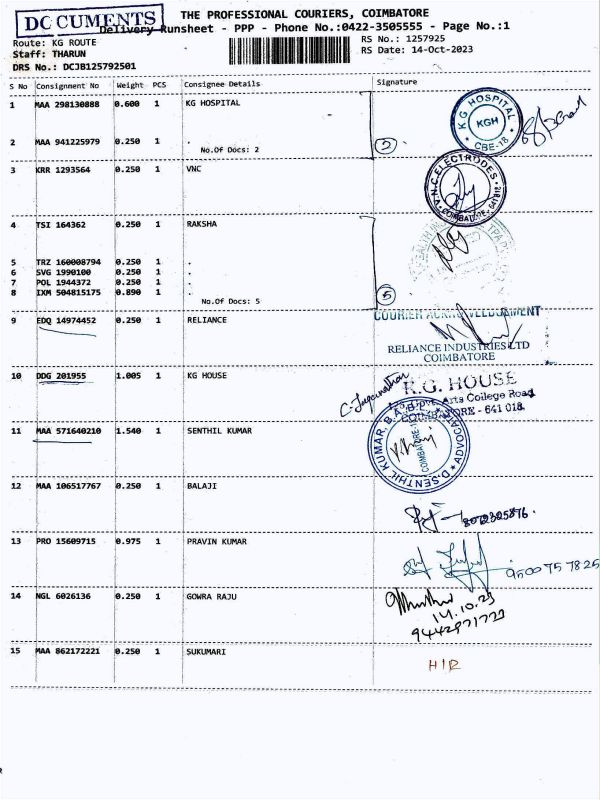 DOCUMENTS
THE PROFESSIONAL COURIERS, COIMBATORE
Delivery Runsheet - PPP - Phone No.:0422-3505555 - Page No.:1
Route: KG ROUTE
RS No.: 1257925
Staff: THARUN
RS Date: 14-Oct-2023
DRS No.: DCJB125792501
S No Consignment No Weight PCS Consignee Details Signature
1 MAA 298130888 0.600 1 KG HOSPITAL
K G HOSPITAL
KGH
CBE-18
2 MAA 941225979 0.250 1 .
No.Of Docs: 2
2
3 KRR 1293564 0.250 1 VNC
V.N.C. ELECTRODES
COIMBATORE - 641 012
4 TSI 164362 0.250 1 RAKSHA
5 TRZ 160008794 0.250 1 .
6 SVG 1990100 0.250 1 .
7 POL 1944372 0.250 1 .
8 IXM 504815175 0.890 1 .
No.Of Docs: 5
5
9 EDQ 14974452 0.250 1 RELIANCE
COURIER ACKNOWLEDGEMENT
RELIANCE INDUSTRIES LTD
COIMBATORE
10 DDG 201955 1.005 1 KG HOUSE
K.G. HOUSE
Arts College Road
COIMBATORE - 641 018.
11 MAA 571640210 1.540 1 SENTHIL KUMAR
D.SENTHIL KUMAR. B.A.,B.L.
ADVOCATE
COIMBATORE
12 MAA 106517767 0.250 1 BALAJI
13 PRO 15609715 0.975 1 PRAVIN KUMAR
9500757825
14 NGL 6026136 0.250 1 GOWRA RAJU
14.10.23
15 MAA 862172221 0.250 1 SUKUMARI